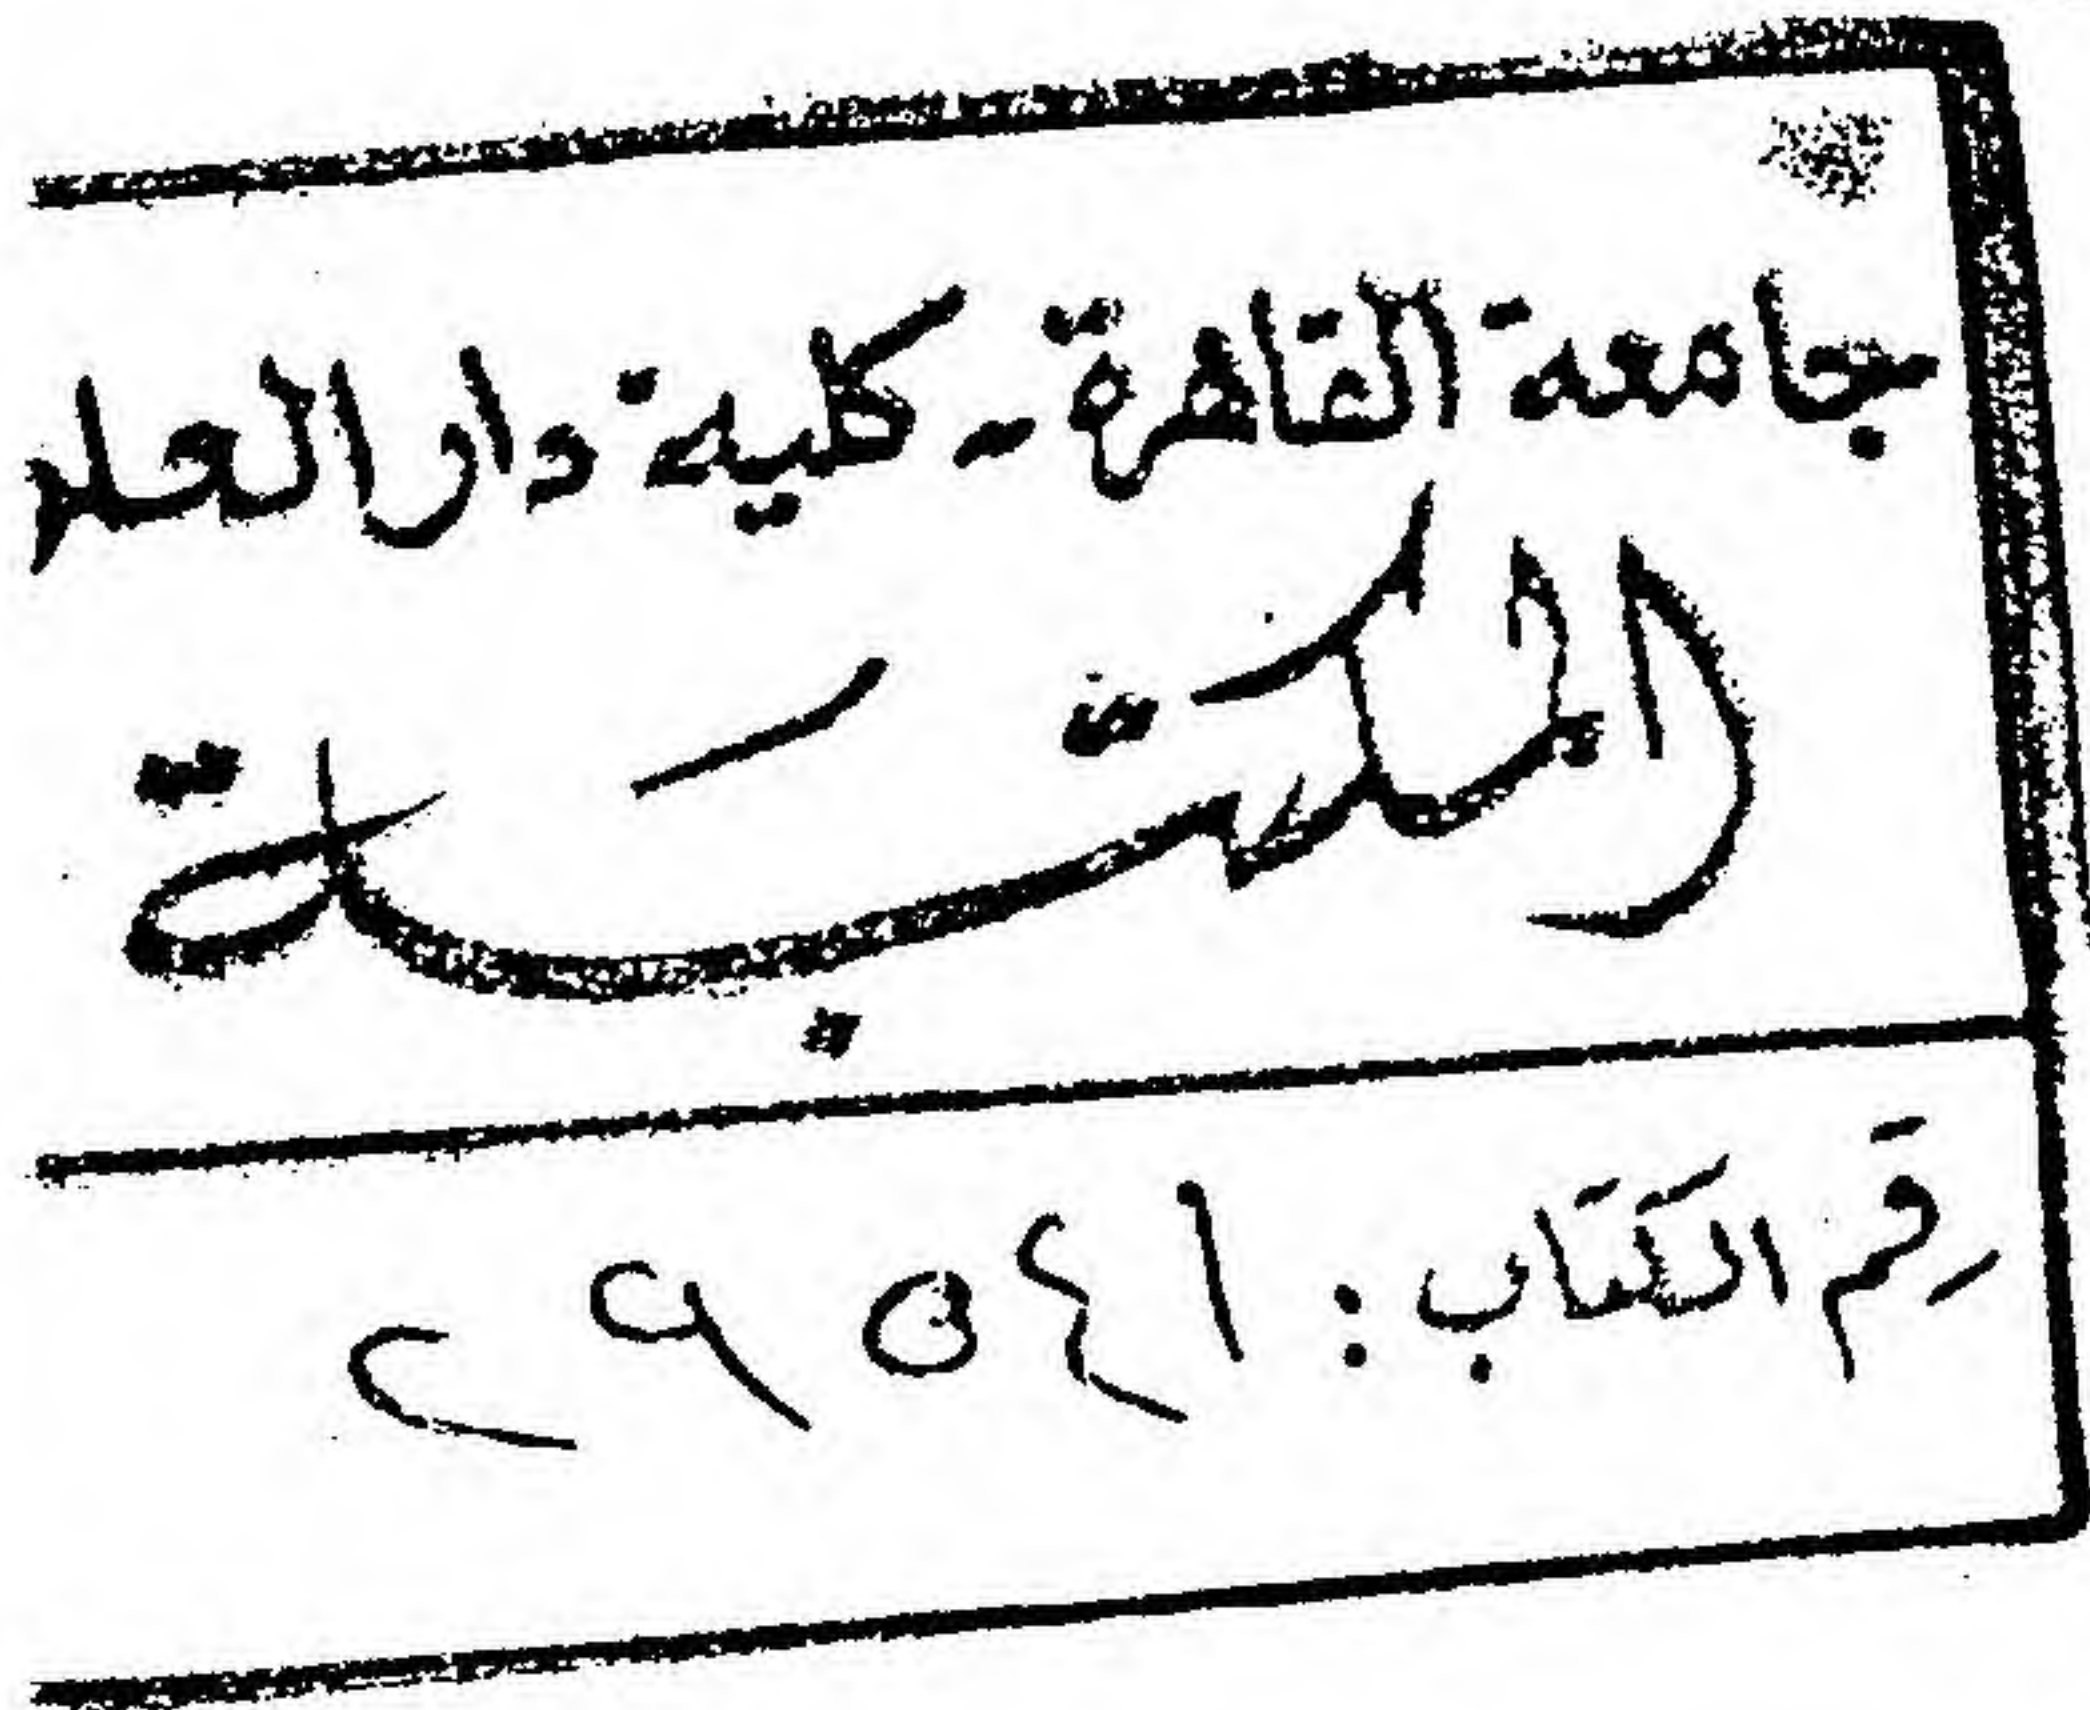 جامعة القاهرة - كلية دار العلو
المكتبة
رقم الكتاب: ٢٩٥٤١